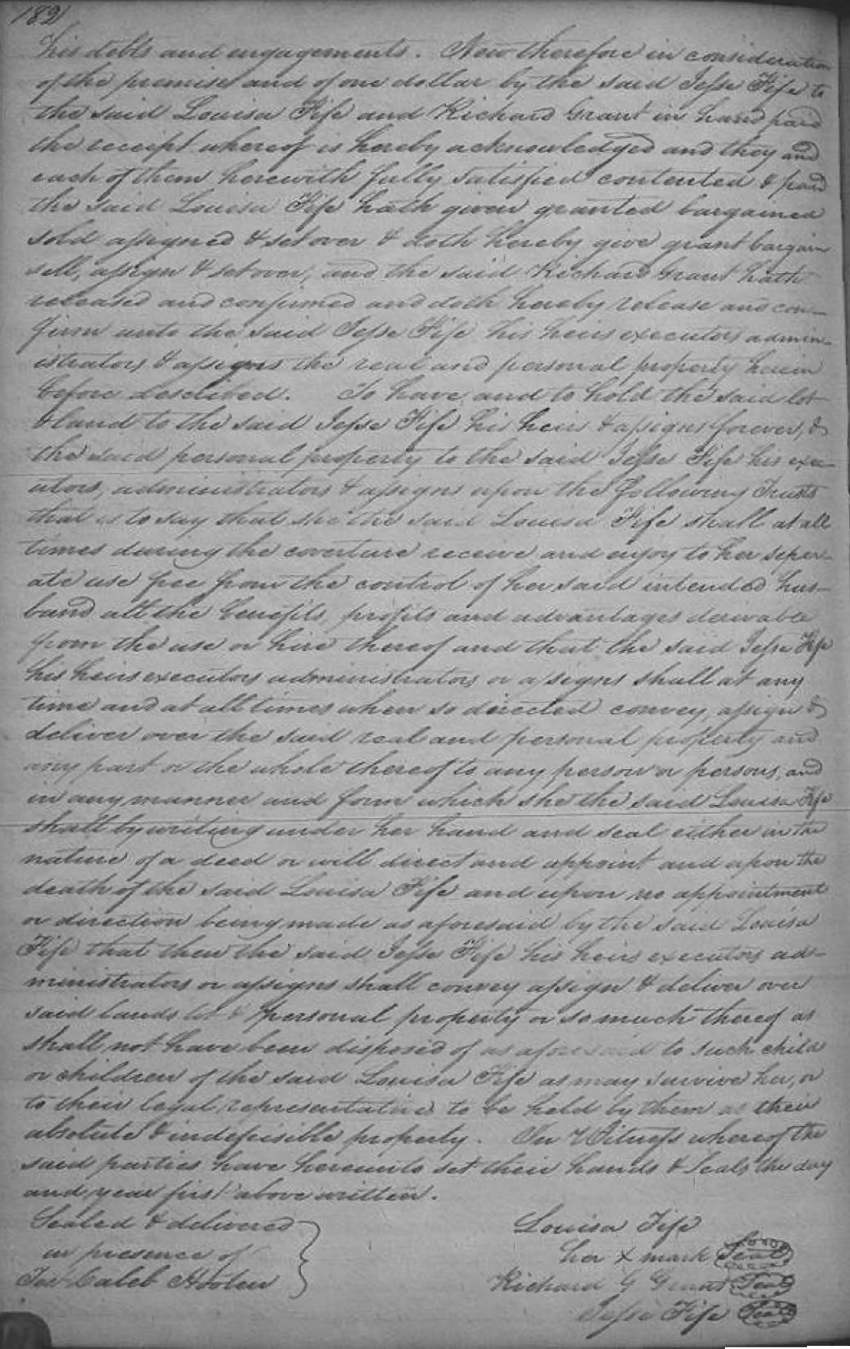 182
his debts and engagements. Now therefore in consideration
of the premises and of one dollar by the said Jesse Fife to
the said Louisa Fife and Richard Grant in hand paid
the receipt whereof is hereby acknowledged and they and
each of them herewith fully satisfied contented & paid
the said Louisa Fife hath given granted bargained
sold assigned & set over & doth hereby give grant bargain
sell, assign & set over, and the said Richard Grant hath
released and confirmed and doth hereby release and con-
firm unto the said Jesse Fife his heirs executors admin-
istrators & assigns the real and personal property herein
before described. To have and to hold the said lot
& land to the said Jesse Fife his heirs & assigns forever, &
the said personal property to the said Jesse Fife his exec-
utors, administrators & assigns upon the following Trusts
that is to say that she the said Louisa Fife shall at all
times during the coverture receive and enjoy to her seper-
ate use free from the control of her said intended hus-
band all the benefits, profits and advantages derivable
from the use or hire thereof and that the said Jesse Fife
his heirs executors administrators or assigns shall at any
time and at all times when so directed convey, assign &
deliver over the said real and personal property and
any part or the whole thereof to any person or persons, and
in any manner and form which she the said Louisa Fife
shall by writing under her hand and seal either in the
nature of a deed or will direct and appoint and upon the
death of the said Louisa Fife and upon no appointment
or direction being made as aforesaid by the said Louisa
Fife that then the said Jesse Fife his heirs executors ad-
ministrators or assigns shall convey assign & deliver over
said lands lot & personal property or so much thereof as
shall not have been disposed of as aforesaid to such child
or children of the said Louisa Fife as may survive her, or
to their legal representatives to be held by them as their
absolute & indefeisible property. In Witness whereof the
said parties have hereunto set their hands & seals the day
and year first above written.
Sealed & delivered
in presence of
Caleb
Louisa Fife
her x mark Seal
Richard G Grant Seal
Jesse Fife Seal